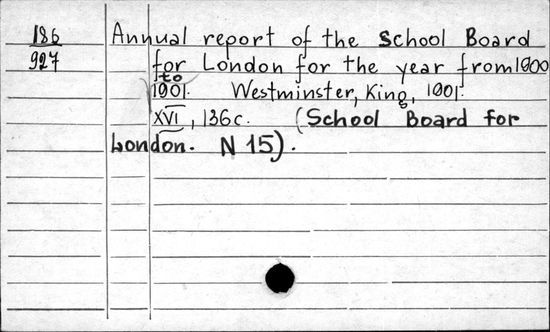 186 Annual report of the School Board
927 for London for the year from 1900
to
1901. Westminster, King, 1901.
XVI, 136c. (School Board for
London. N 15).